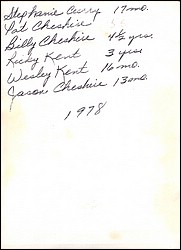 Stephanie Curry 17 mo.
Pat Cheshire
Billy Cheshire 4½ yrs.
Ricky Kent 3 yrs
Wesley Kent 16 mo.
Jason Cheshire 13 mo.
1978